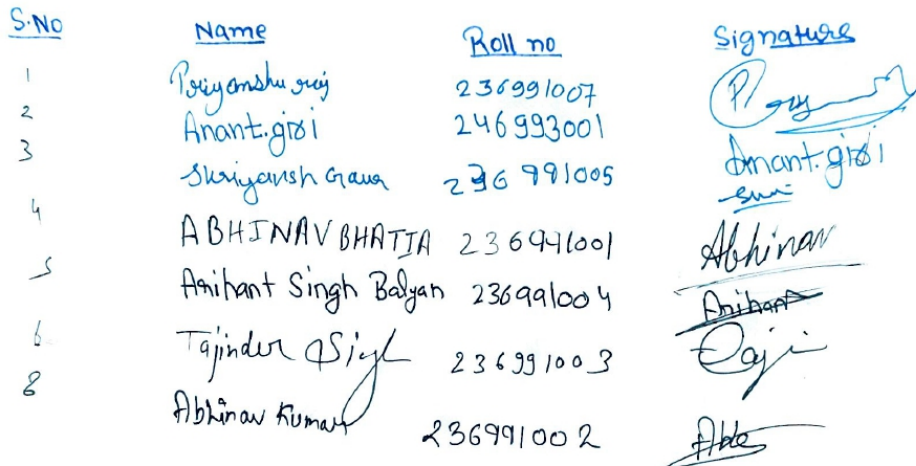 S.No Name Roll no Signature
1 Priyanshu raj 236991007 P raj
2 Anant.giri 246993001 Anant.giri
3 Shriyansh Gaur 236991005
4 ABHINAV BHATIA 236991001 Abhinav
5 Arihant Singh Balyan 236991004 Arihant
6 Tajinder Singh 236991003 Taji
8 Abhinav Kumar 236991002